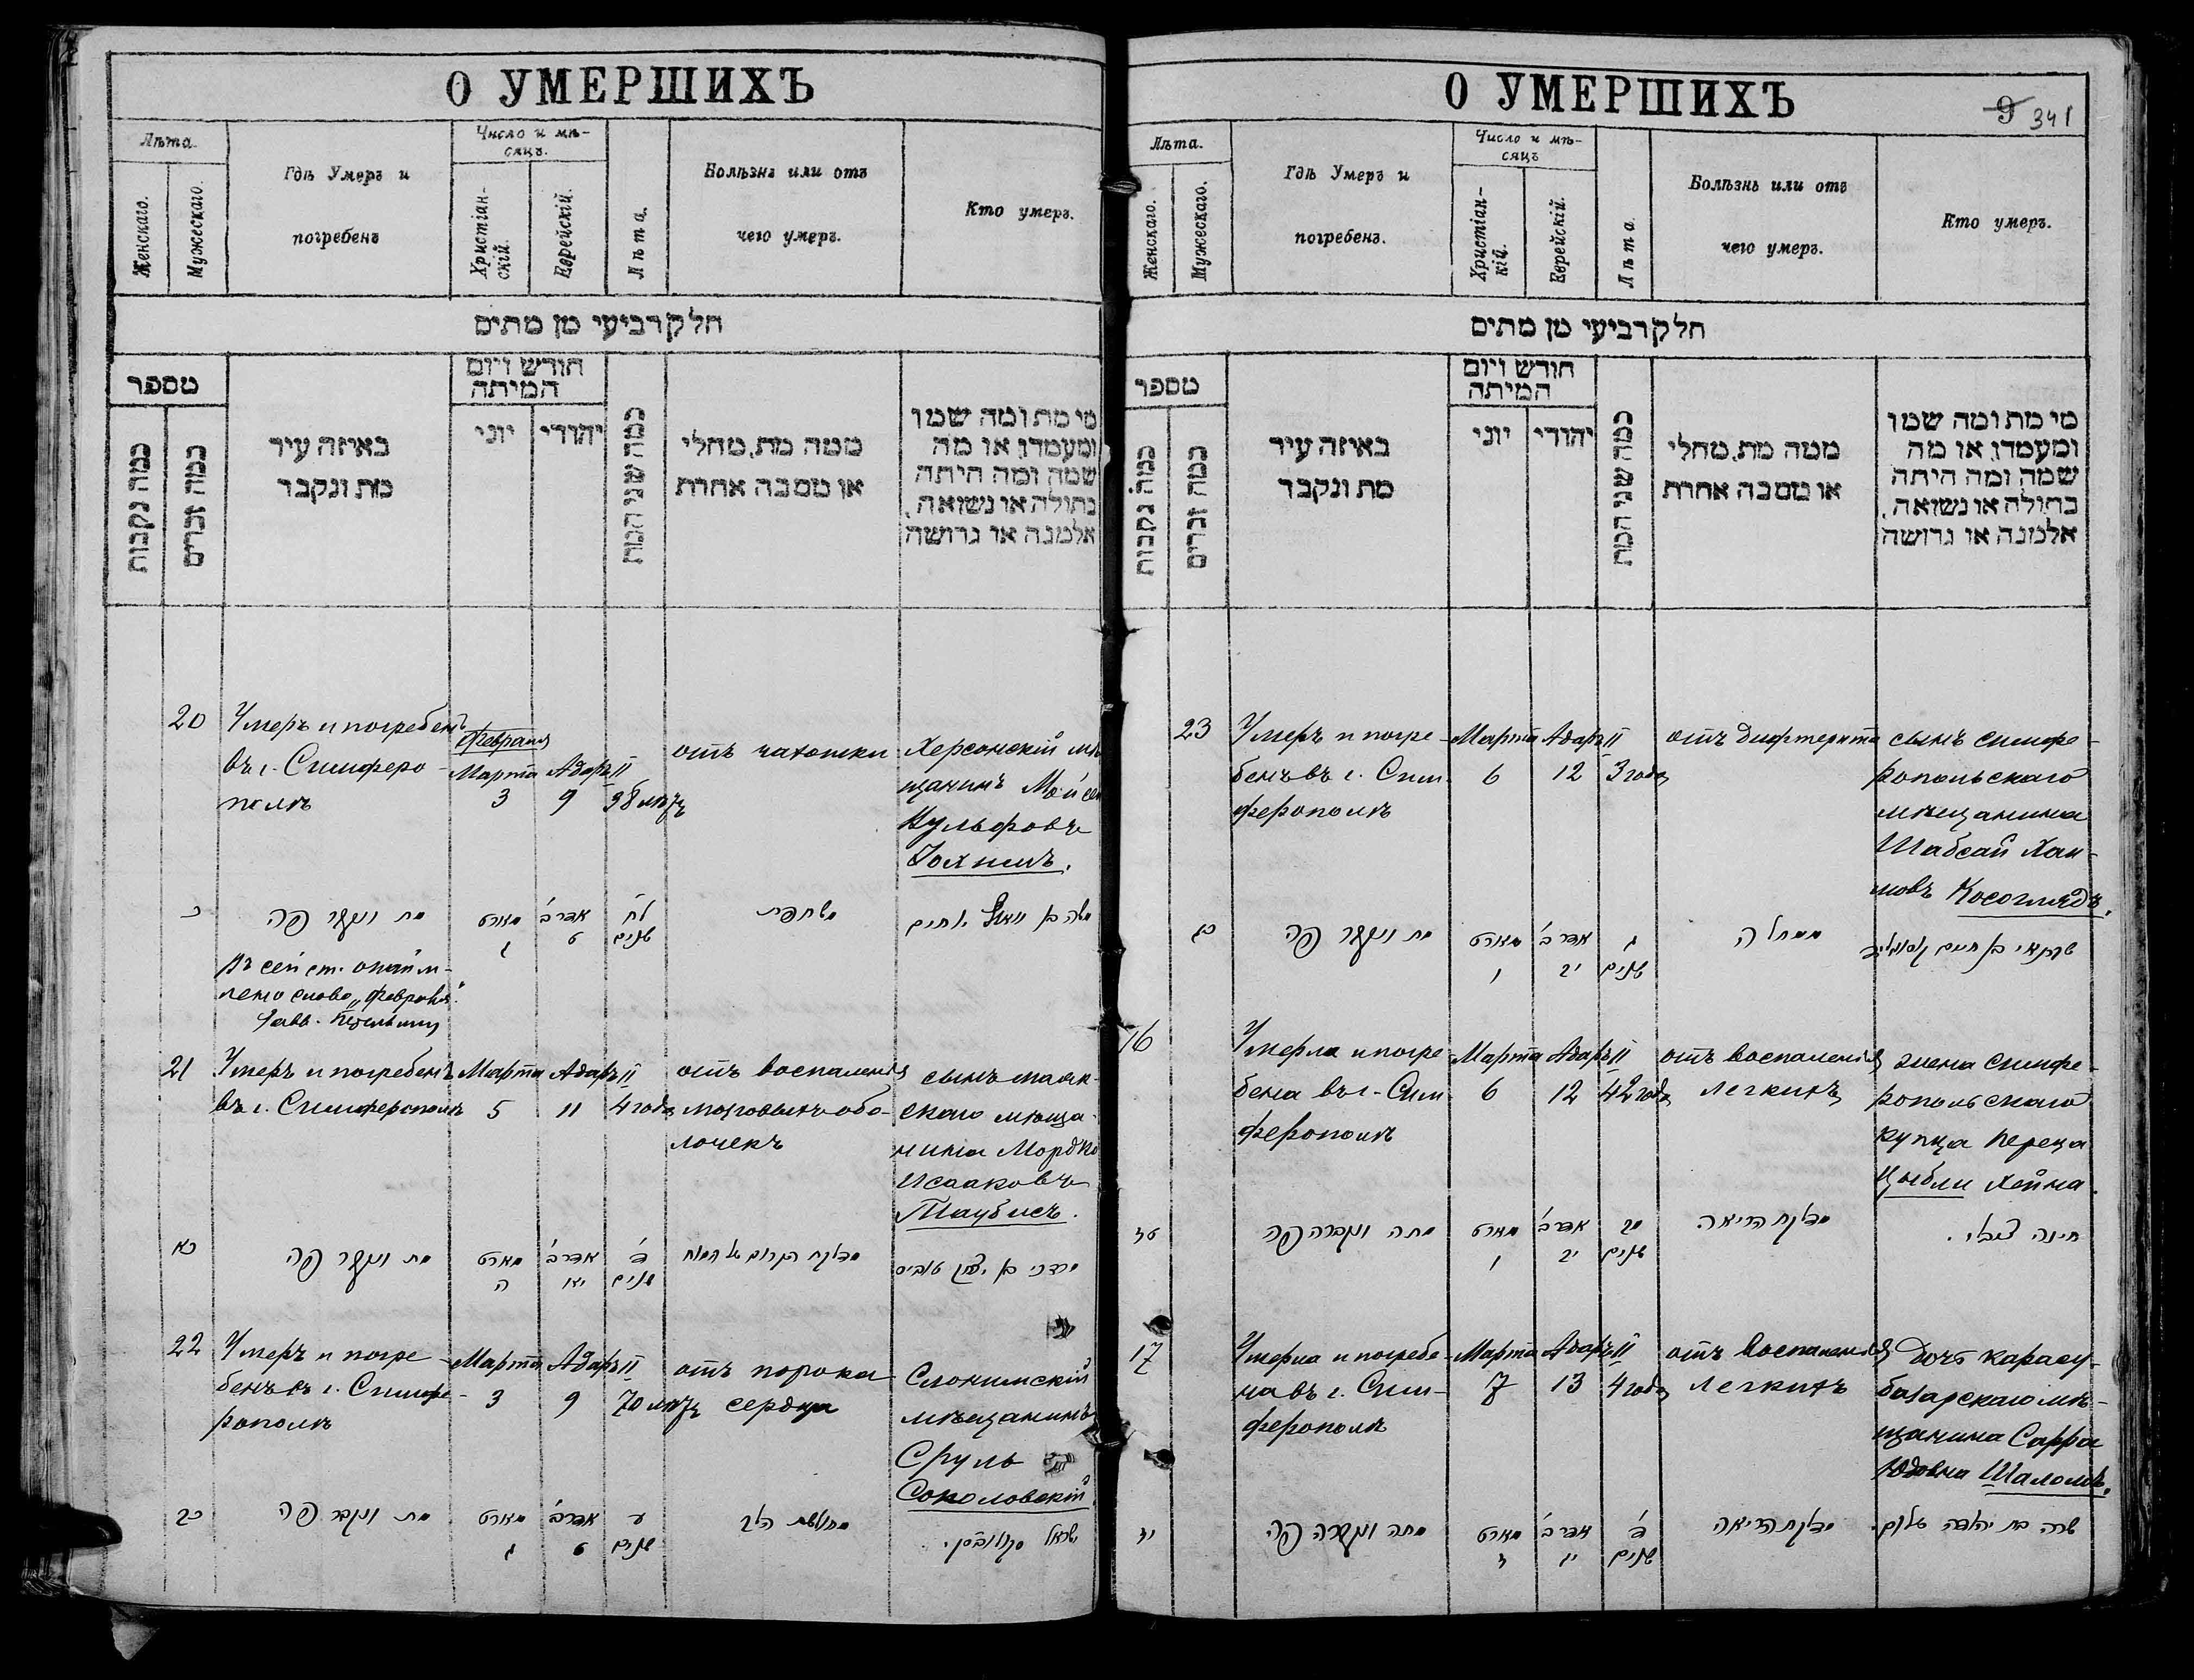 О УМЕРШИХЪ
Лѣта.
Женскаго.
Мужескаго.
Гдѣ Умеръ и
погребенъ
Число и мѣ-
сяцъ.
Христіан-
скій.
Еврейскій.
Лѣта.
Болѣзнь или отъ
чего умеръ.
Кто умеръ.
חלק רביעי מן מתים
מספר
כמה נקבות
כמה זכרים
באיזה עיר
מת ונקבר
חודש ויום
המיתה
יוני
יהודי
כמה שני המת
ממה מת, מחלי
או מסבה אחרת
מי מת ומה שמו
ומעמדו, או מה
שמה ומה היתה
בתולה או נשואה,
אלמנה או גרושה
20
Умеръ и погребенъ
въ г. Симферо-
полѣ
Февраля
Марта
3
Адаръ II
9
38 лѣтъ
отъ чахотки
Херсонскій мѣ
щанинъ Мойсей
Вульфовъ
כ
מת ונקבר פה
מארט
ג
אדר ב'
ט
לח
שנים
משחפת
משה בן וואלף
Въ сей ст.
лено слово „Февраля".
21
Умеръ и погребенъ
въ г. Симферополѣ
Марта
5
Адаръ II
11
4 года
отъ воспаленія
мозговыхъ обо-
лочекъ
сынъ маяк-
скаго мѣща-
нина Мордко
Исааковъ
Таубисъ.
כא
מת ונקבר פה
מארט
ה
אדר ב'
יא
ד'
שנים
מדלקת הקרום של המוח
מרדכי בן יצחק טוביס
22
Умеръ и погре-
бенъ въ г. Симфе-
рополѣ
Марта
3
Адаръ II
9
70 лѣтъ
отъ порока
сердца
Слонимскій
мѣщанинъ
Сруль
Соколовскій
כב
מת ונקבר פה
מארט
ג
אדר ב'
ט
ע
שנים
מחולשת הלב
ישראל סקולובסקי.
О УМЕРШИХЪ
9 341
Лѣта.
Женскаго.
Мужескаго.
Гдѣ Умеръ и
погребенъ.
Число и мѣ-
сяцъ
Христіан-
кій.
Еврейскій.
Лѣта.
Болѣзнь или отъ
чего умеръ.
Кто умеръ.
חלק רביעי מן מתים
מספר
כמה נקבות
כמה זכרים
באיזה עיר
מת ונקבר
חודש ויום
המיתה
יוני
יהודי
כמה שני המת
ממה מת, מחלי
או מסבה אחרת
מי מת ומה שמו
ומעמדו, או מה
שמה ומה היתה
בתולה או נשואה,
אלמנה או גרושה
23
Умеръ и погре-
бенъ въ г. Сим-
ферополѣ
Марта
6
Адаръ II
12
3 года
отъ дифтерита
сынъ симфе-
ропольскаго
мѣщанина
Шабсай Хаи-
мовъ Косоглядъ.
כג
מת ונקבר פה
מארט
ו
אדר ב'
יב
ג
שנים
ממחלה
שבתאי בן חיים קוסוגליד
16
Умерла и погре-
бена въ г. Сим-
ферополѣ
Марта
6
Адаръ II
12
42 года
отъ воспаленія
легкихъ
жена симфе-
ропольскаго
купца Переца
Цыбли Хейна.
טז
מתה ונקברה פה
מארט
ו
אדר ב'
יב
מב
שנים
מדלקת הריאה
חינה ציבלי.
17
Умерла и погребе-
на въ г. Сим-
ферополѣ
Марта
7
Адаръ II
13
4 года
отъ воспаленія
легкихъ
дочь карасу-
базарскаго мѣ-
щанина Сарра
Юдовна Шаломъ.
יז
מתה ונקברה פה
מארט
ז
אדר ב'
יג
ד'
שנים
מדלקת הריאה
שרה בת יהודה שלום.